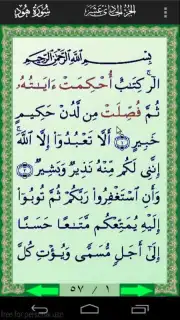 سُورَةُ هُودٍ الجزء الحادي عشر
بِسْمِ اللَّهِ الرَّحْمَٰنِ الرَّحِيمِ
الٓر ۚ كِتَٰبٌ أُحْكِمَتْ ءَايَٰتُهُۥ
ثُمَّ فُصِّلَتْ مِن لَّدُنْ حَكِيمٍ
خَبِيرٍ ١ أَلَّا تَعْبُدُوٓا۟ إِلَّا ٱللَّهَ ۚ
إِنَّنِى لَكُم مِّنْهُ نَذِيرٌ وَبَشِيرٌ ٢
وَأَنِ ٱسْتَغْفِرُوا۟ رَبَّكُمْ ثُمَّ تُوبُوٓا۟
إِلَيْهِ يُمَتِّعْكُم مَّتَٰعًا حَسَنًا
إِلَىٰٓ أَجَلٍ مُّسَمًّى وَيُؤْتِ كُلَّ
٥٧ / ١